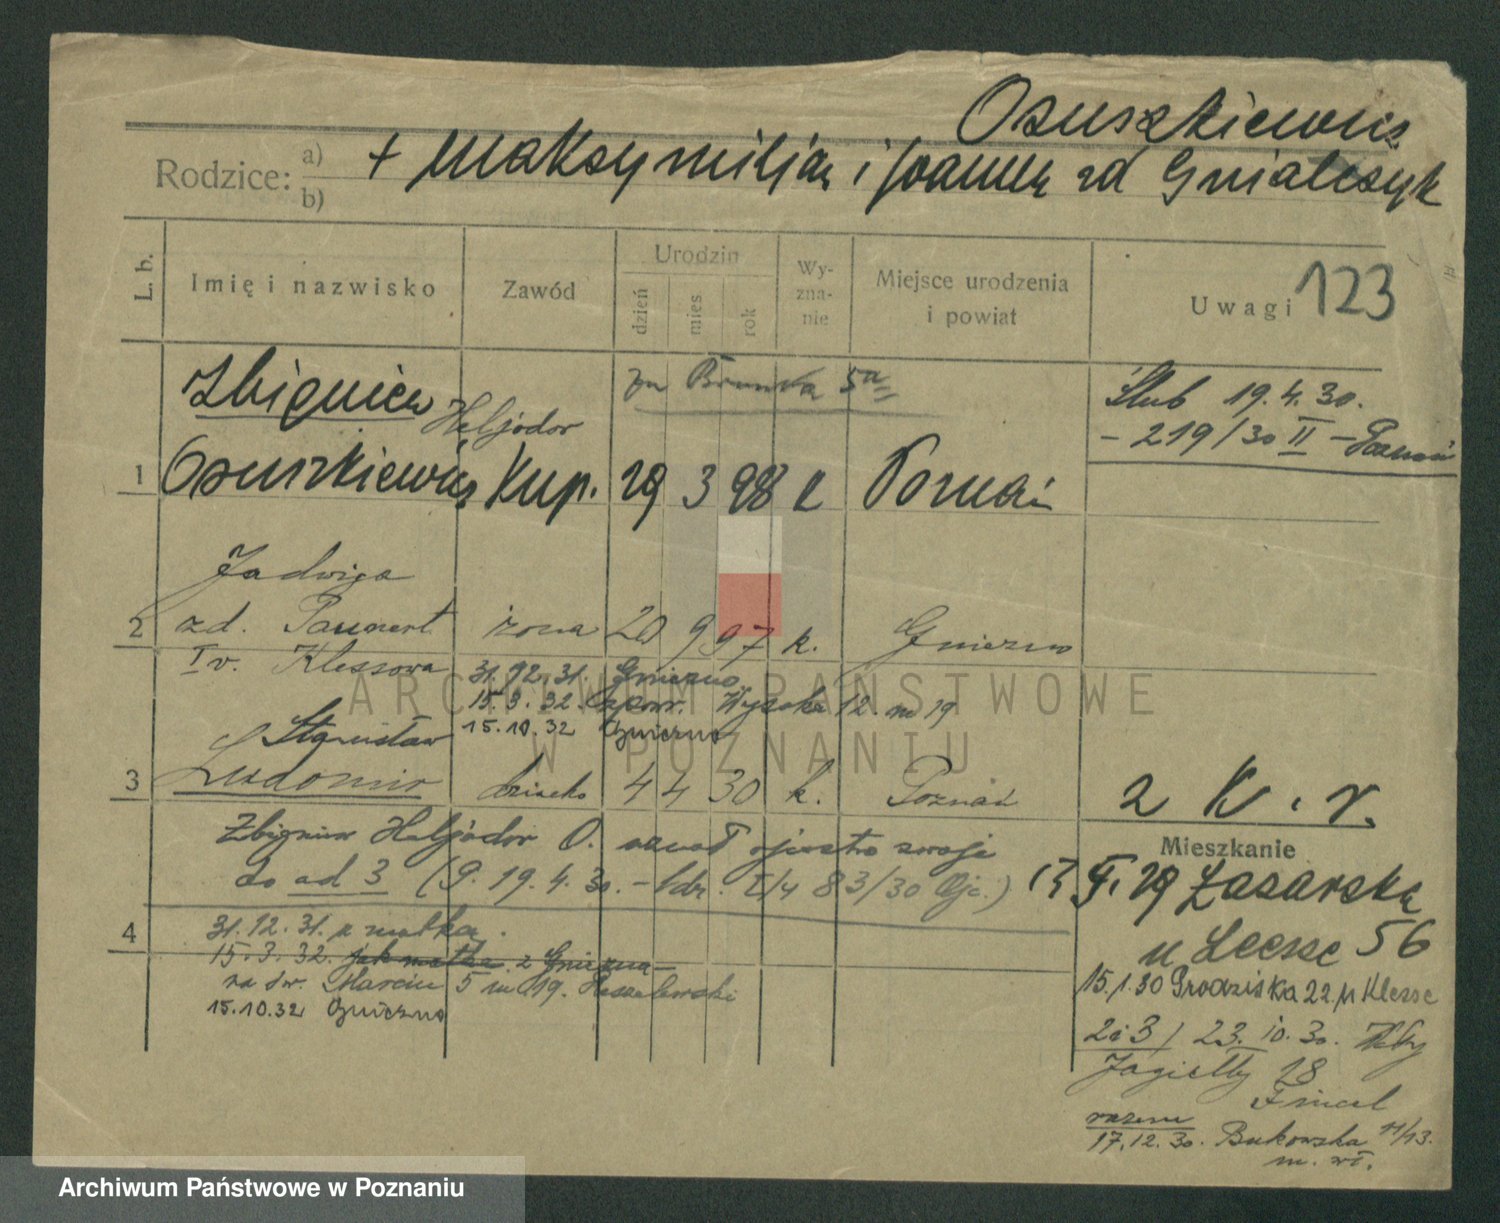 Osuszkiewicz
Rodzice: a) b) + Maksymiljan i Joanna zd Gnialczyk
L. b. Imię i nazwisko Zawód Urodzin dzień mies rok Wyznanie Miejsce urodzenia i powiat Uwagi 123
Zbigniew Heljodor 5a
Ślub 19.4.30.
- 219/30 II - Poznań
1 Osuszkiewicz Kup. 29 3 98 k Poznań
Jadwiga
2 zd. Paunert żona 20 9 97 k. Gniezno
I v. Klessowa 31.12.31. Gniezno
15.3.32. Wysoka 12. m 19
15.10.32 Gniezno
Stanisław
3 Ludomir dziecko 4 4 30 k. Poznań
2 K. r.
Zbigniew Heljodor O. uznał ojcostwo swoje
do ad 3 (P. 19.4.30. - 83/30 Ojc.)
Mieszkanie
29 Łazarska
u Klesse 56
4 31.12.31. u matka.
15.3.32. jak matka z Gniezna
na św. Marcin 5 m 19.
15.10.32 Gniezno
15.1.30 Grodziska 22 u Klesse
2 i 3) 23.10.30.
Jagiełły 18
razem
17.12.30. Bukowska 11/13.
m. wł.
ARCHIWUM PAŃSTWOWE
W POZNANIU
Archiwum Państwowe w Poznaniu